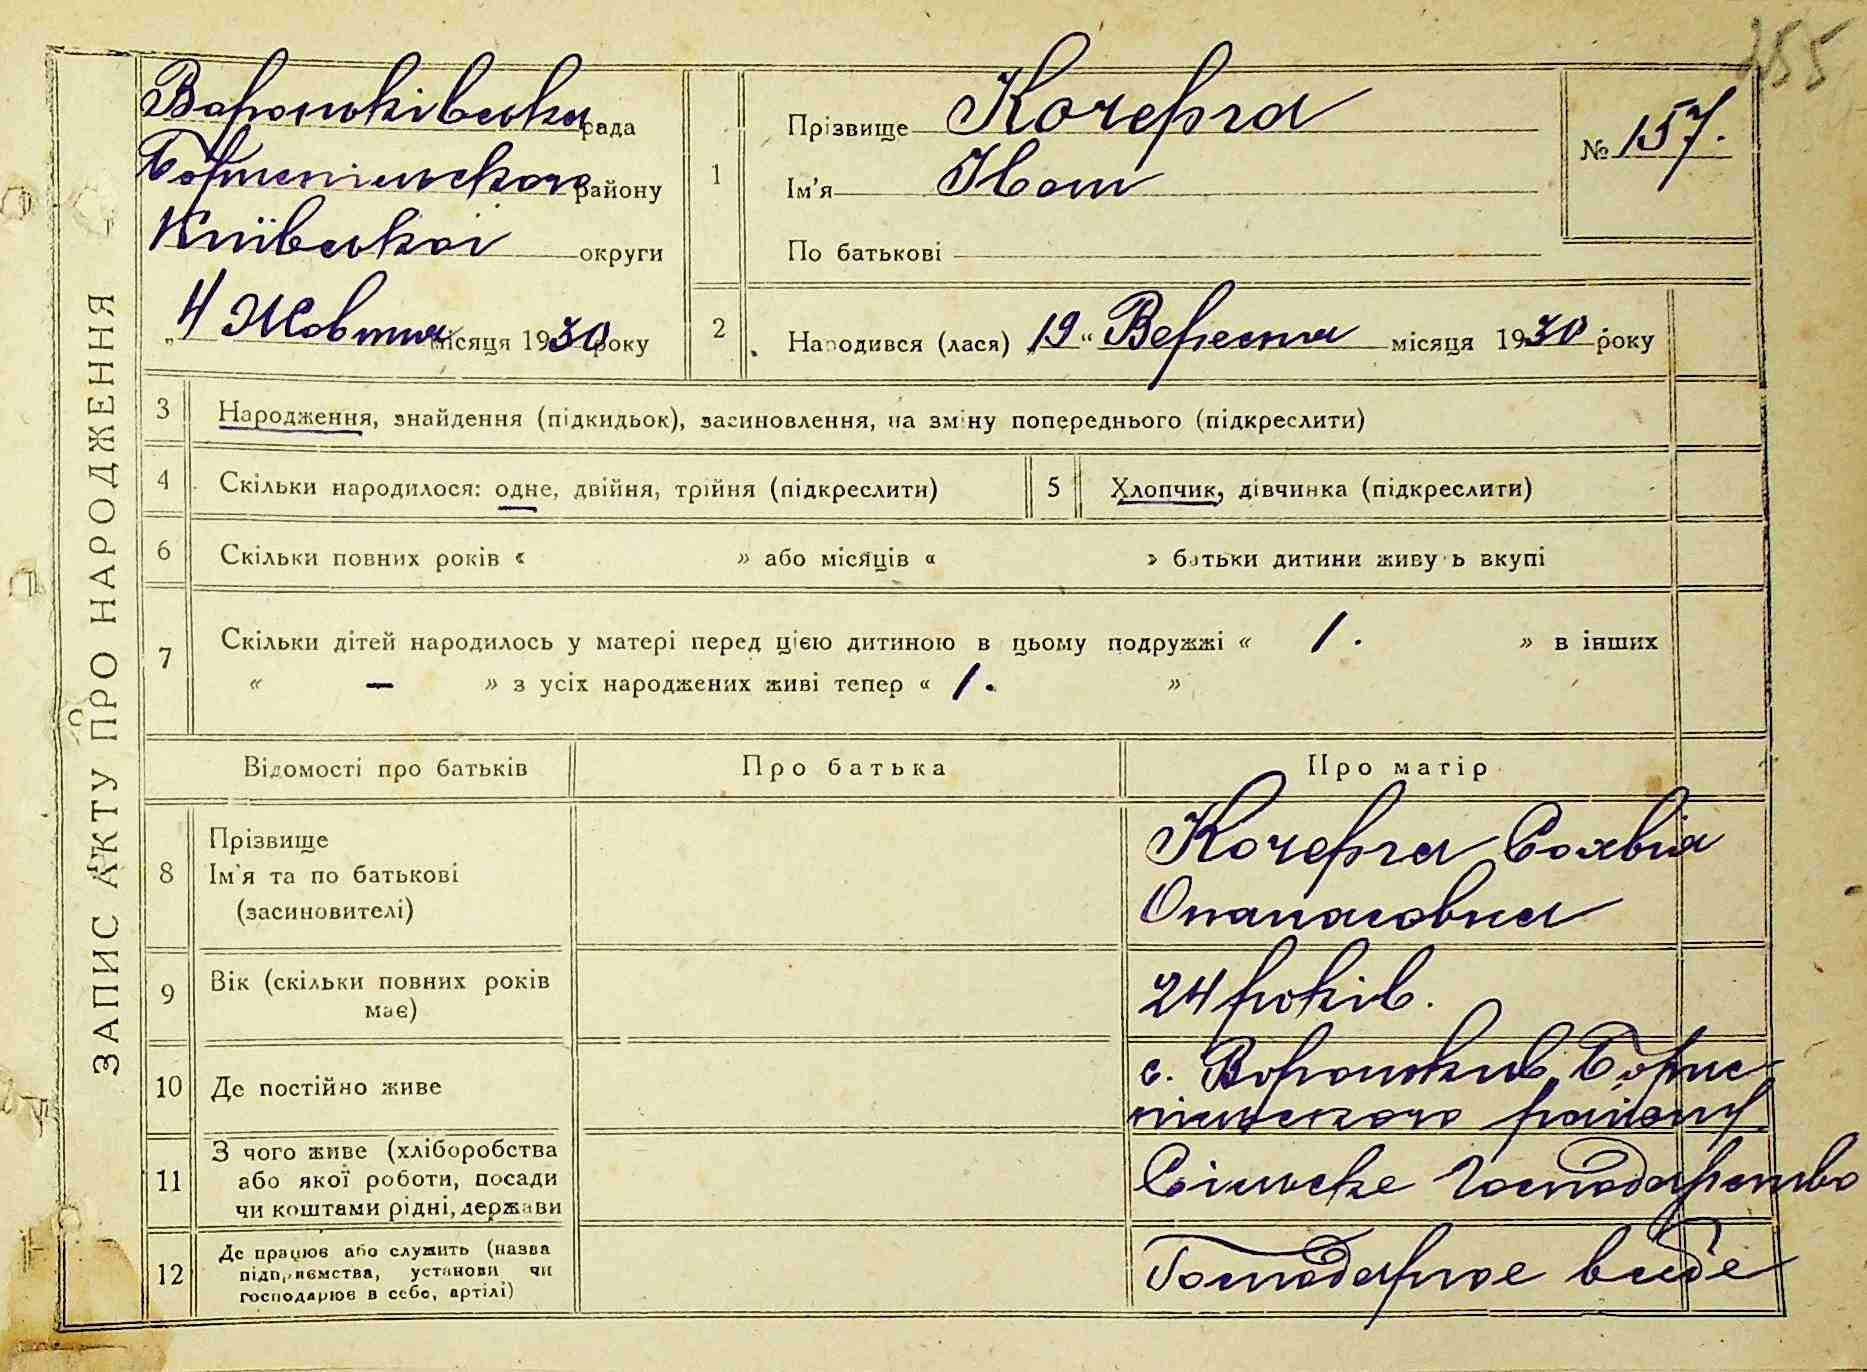 255
ЗАПИС АКТУ ПРО НАРОДЖЕННЯ
Вороньківська рада
Бориспільского району
Київської округи
„4 Жовтня місяця 1930 року
1
Прізвище Кочерга
Ім'я Іван
По батькові
№ 157.
2
Народився (лася) „19" Вересня місяця 1930 року
3 Народження, знайдення (підкидьок), засиновлення, на зміну попереднього (підкреслити)
4 Скільки народилося: одне, двійня, трійня (підкреслити)
5 Хлопчик, дівчинка (підкреслити)
6 Скільки повних років « » або місяців « » батьки дитини живуть вкупі
7 Скільки дітей народилось у матері перед цією дитиною в цьому подружжі « 1. » в інших
« — » з усіх народжених живі тепер « 1. »
Відомості про батьків Про батька Про матір
8
Прізвище
Ім'я та по батькові
(засиновителі)
Кочерга Сохвія
Опанасовна
9
Вік (скільки повних років
має)
24 років.
10 Де постійно живе
с. Вороньків, Борис-
пільского району
11
З чого живе (хліборобства
або якої роботи, посади
чи коштами рідні, держави
Сільське господарство
12
Де працює або служить (назва
підприємства, установи чи
господарює в себе, артілі)
Господарює в себе